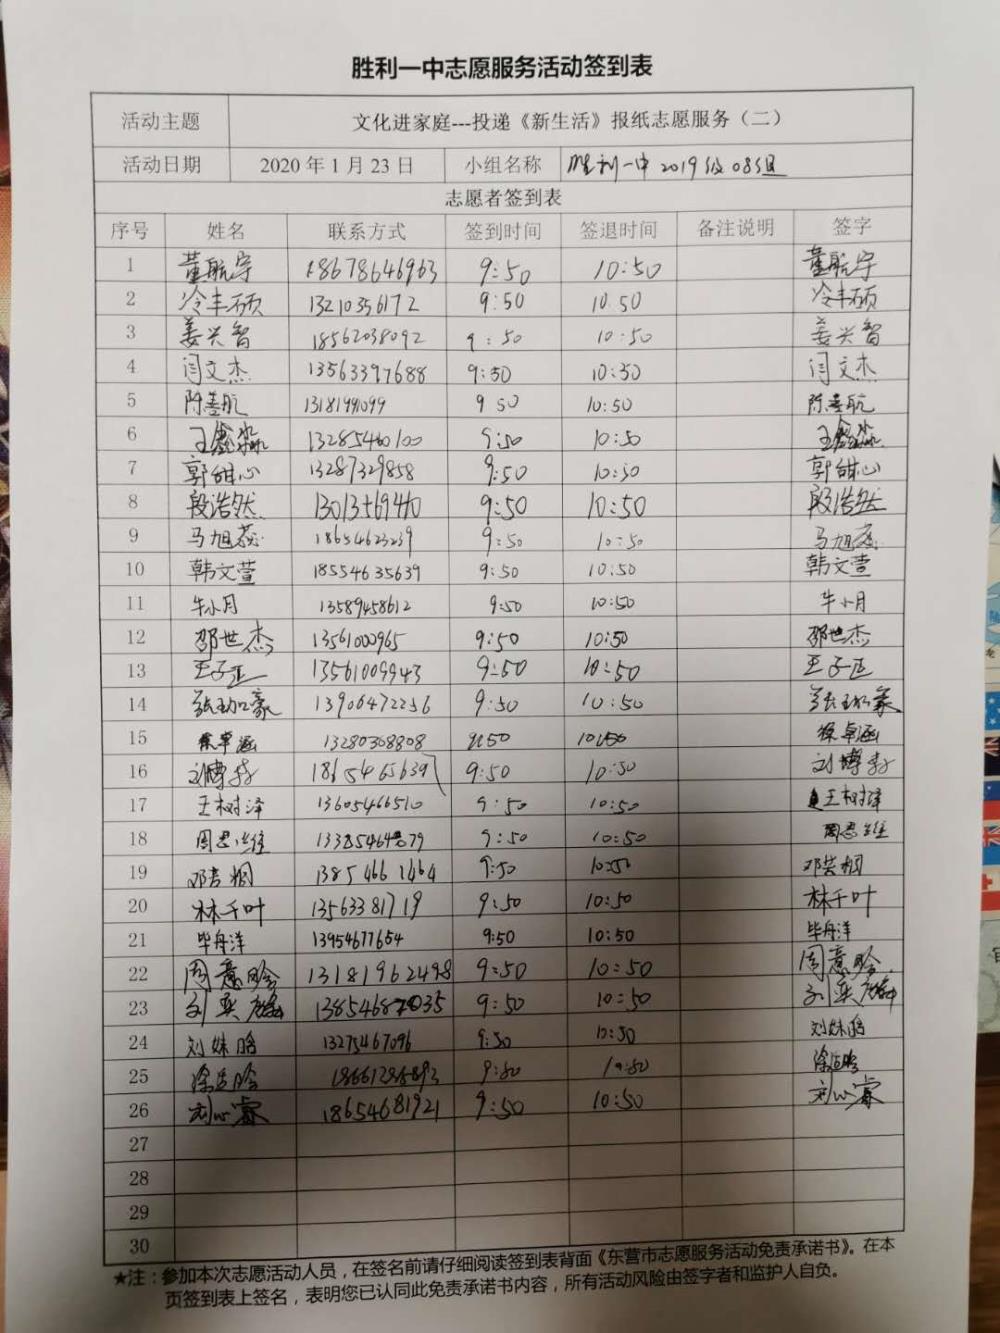 胜利一中志愿服务活动签到表
活动主题 文化进家庭---投递《新生活》报纸志愿服务（二）
活动日期 2020 年 1 月 23 日 小组名称 胜利一中2019级08组
志愿者签到表
序号 姓名 联系方式 签到时间 签退时间 备注说明 签字
1 董航宇 18678646963 9:50 10:50 董航宇
2 冷丰硕 13210356172 9:50 10.50 冷丰硕
3 姜兴智 18562038092 9:50 10:50 姜兴智
4 闫文杰 13563397688 9:50 10:50 闫文杰
5 陈善航 13181991099 9 50 10:50 陈善航
6 王鑫淼 13285460100 9:50 10:50 王鑫淼
7 郭甜心 13287329858 9:50 10:50 郭甜心
8 殷浩然 9:50 10:50 殷浩然
9 马旭蕊 18654623239 9:50 10:50 马旭蕊
10 韩文萱 18554635639 9:50 10:50 韩文萱
11 牛小月 13589458612 9:50 10:50 牛小月
12 邵世杰 13561000965 9:50 10:50 邵世杰
13 王子正 13561009943 9:50 10:50 王子正
14 13906472256 9:50 10:50
15 徐卓涵 13280308808 9:50 10:50 徐卓涵
16 刘博 18654656391 9:50 10:50 刘博
17 王树泽 13605466510 9:50 10:50 王树泽
18 周思维 9:50 10:50 周思维
19 13854661464 9:50 10:50
20 林千叶 13563381719 9:50 10:50 林千叶
21 毕舟洋 13954677654 9:50 10:50 毕舟洋
22 周意晗 13181962498 9:50 10:50 周意晗
23 刘奕麟 9:50 10:50 刘奕麟
24 刘姝晗 13275467096 9:50 10:50 刘姝晗
25 9:50 10:50
26 刘心睿 18654681921 9:50 10:50 刘心睿
27
28
29
30
★注：参加本次志愿活动人员，在签名前请仔细阅读签到表背面《东营市志愿服务活动免责承诺书》。在本
页签到表上签名，表明您已认同此免责承诺书内容，所有活动风险由签字者和监护人自负。